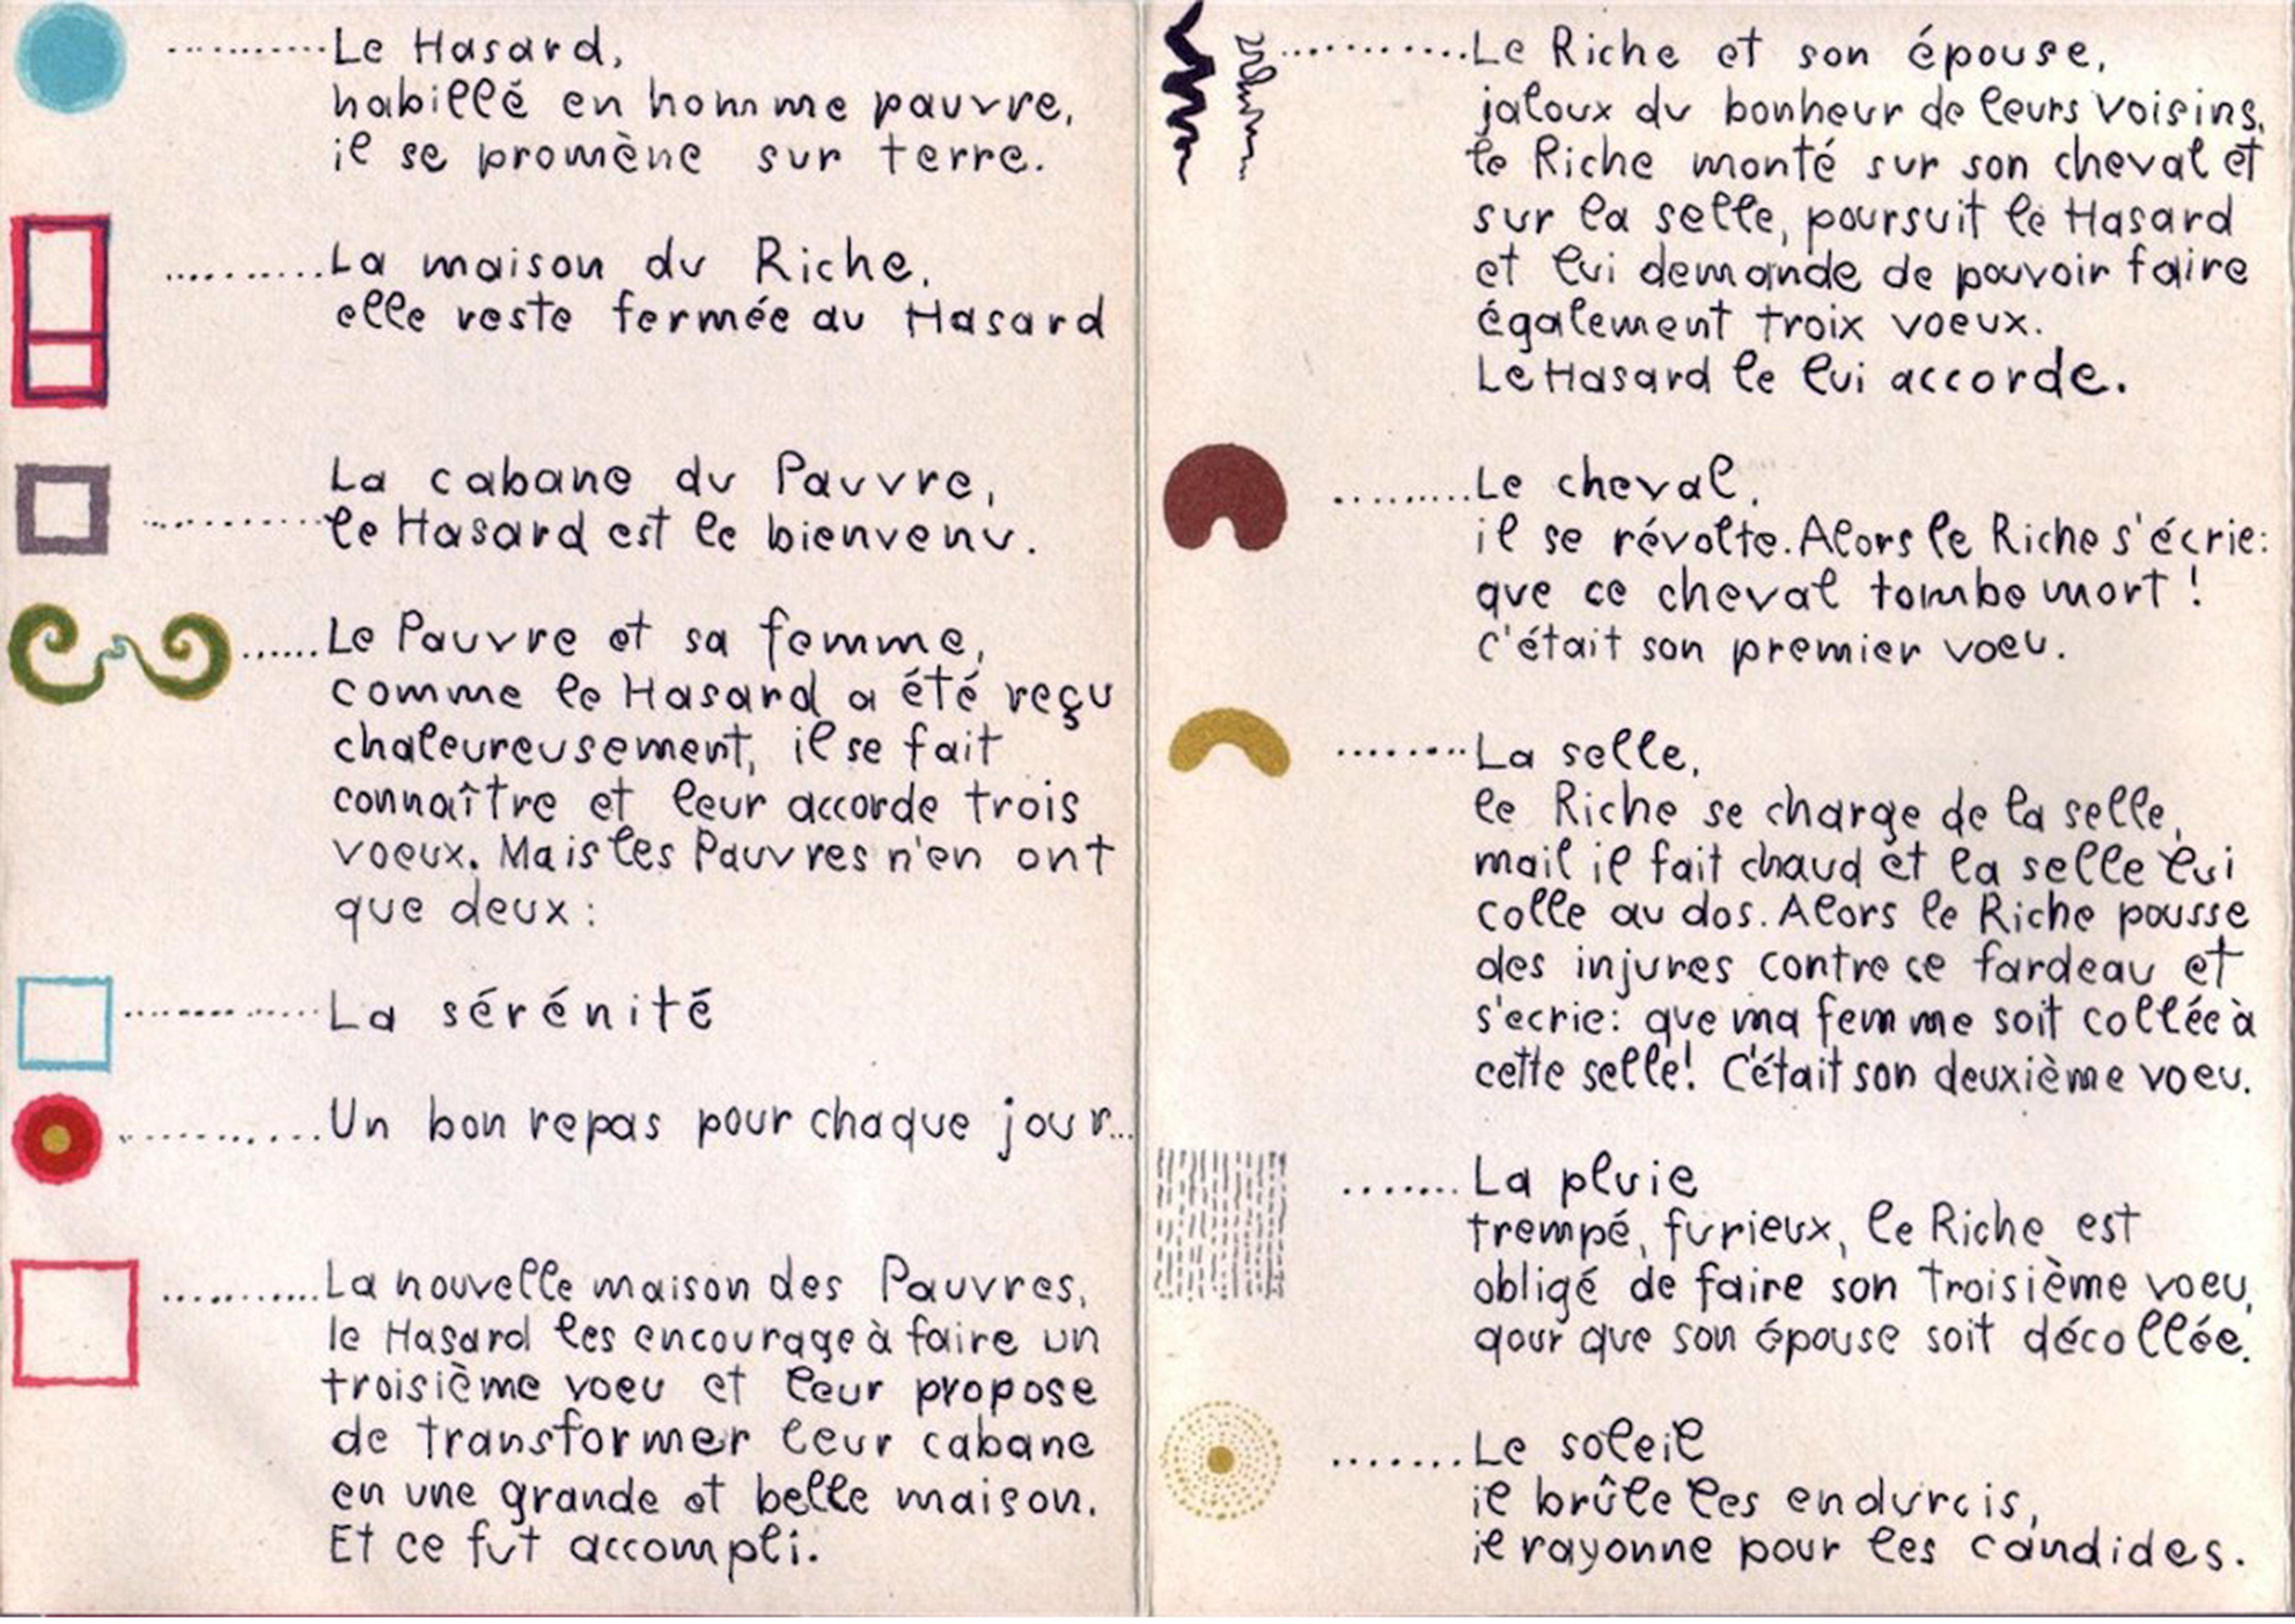 Le Hasard,
habillé en homme pauvre,
il se promène sur terre.
La maison du Riche,
elle reste fermée au Hasard
La cabane du Pauvre,
le Hasard est le bienvenu.
Le Pauvre et sa femme,
comme le Hasard a été reçu
chaleureusement, il se fait
connaître et leur accorde trois
voeux. Mais les Pauvres n'en ont
que deux:
La sérénité
Un bon repas pour chaque jour...
La nouvelle maison des Pauvres,
le Hasard les encourage à faire un
troisième voeu et leur propose
de transformer leur cabane
en une grande et belle maison.
Et ce fut accompli.
Le Riche et son épouse,
jaloux du bonheur de leurs voisins,
le Riche monté sur son cheval et
sur la selle, poursuit le Hasard
et lui demande de pouvoir faire
également troix voeux.
Le Hasard le lui accorde.
Le cheval,
il se révolte. Alors le Riche s'écrie:
que ce cheval tombe mort!
C'était son premier voeu.
La selle,
le Riche se charge de la selle,
mail il fait chaud et la selle lui
colle au dos. Alors le Riche pousse
des injures contre ce fardeau et
s'ecrie: que ma femme soit collée à
cette selle! C'était son deuxième voeu.
La pluie
trempé, furieux, le Riche est
obligé de faire son troisième voeu,
qour que son épouse soit décollée.
Le soleil
il brûle les endurcis,
il rayonne pour les candides.